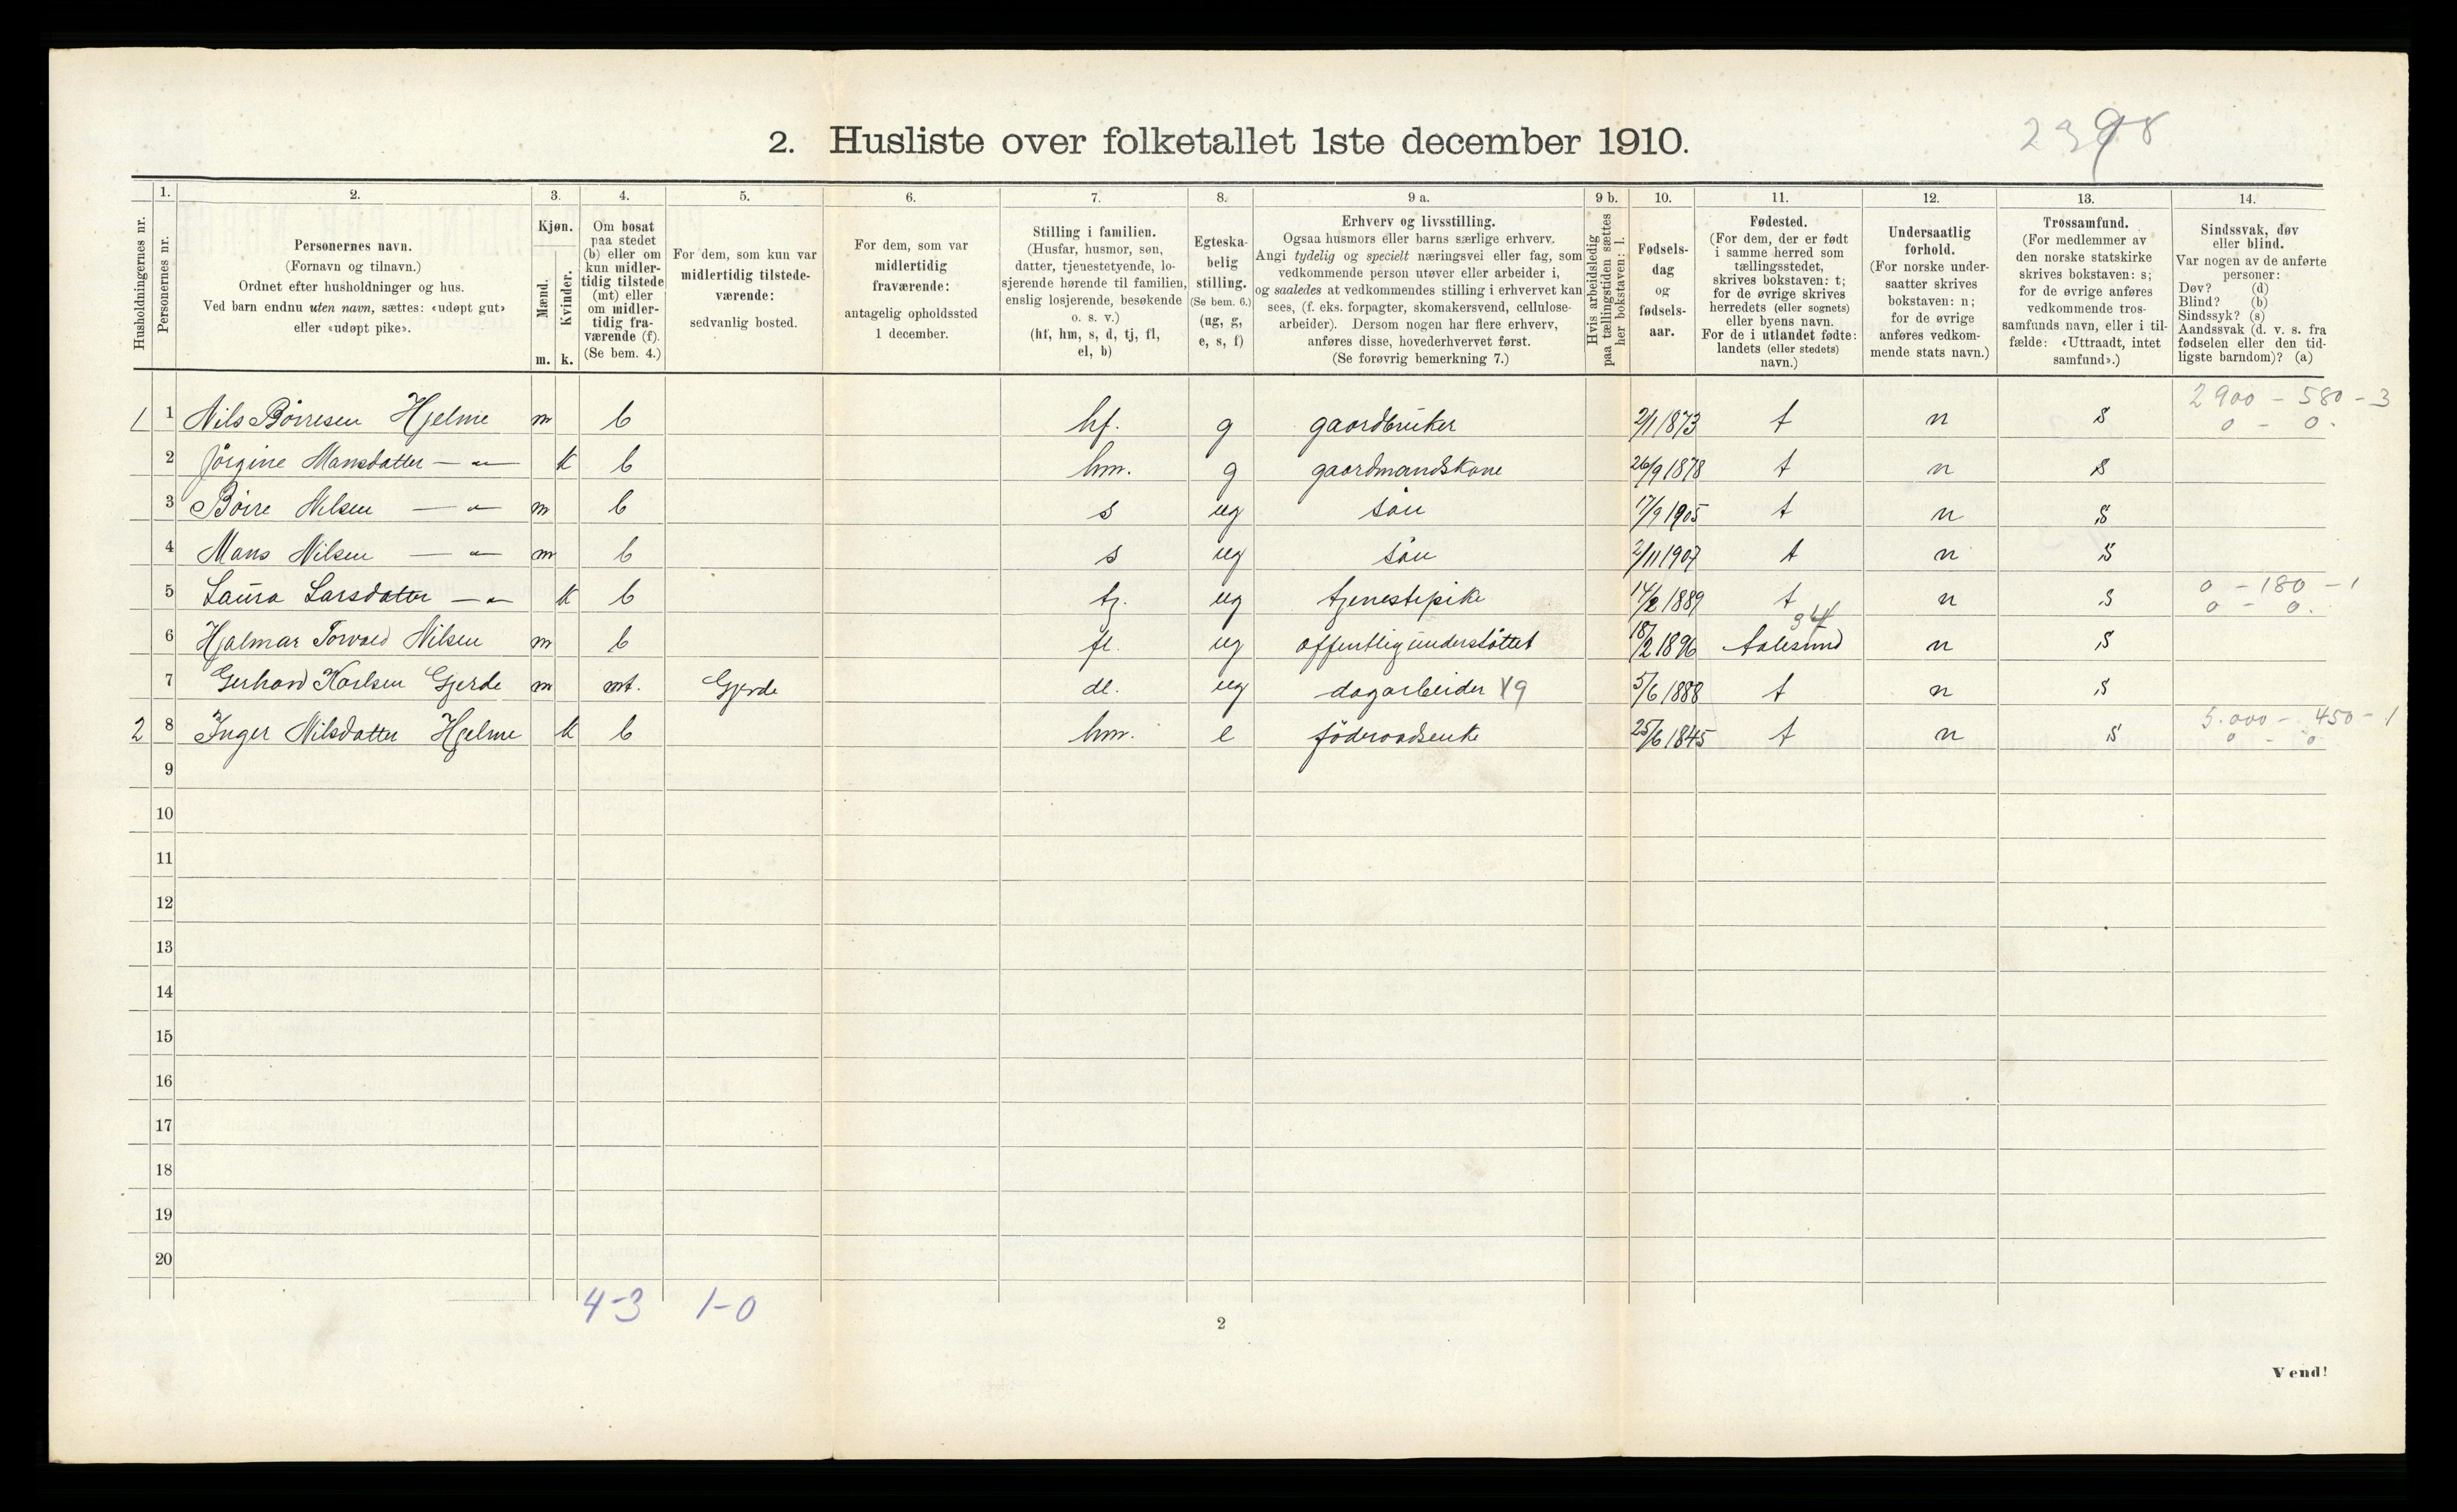 2. Husliste over folketallet 1ste december 1910.
2398
Husholdningernes nr.
1. Personernes nr.
2. Personernes navn.
(Fornavn og tilnavn.)
Ordnet efter husholdninger og hus.
Ved barn endnu uten navn, sættes: «udøpt gut»
eller «udøpt pike».
3. Kjøn.
Mænd. m.
Kvinder. k.
4. Om bosat
paa stedet
(b) eller om
kun midler-
tidig tilstede
(mt) eller
om midler-
tidig fra-
værende (f).
(Se bem. 4.)
5. For dem, som kun var
midlertidig tilstede-
værende:
sedvanlig bosted.
6. For dem, som var
midlertidig
fraværende:
antagelig opholdssted
1 december.
7. Stilling i familien.
(Husfar, husmor, søn,
datter, tjenestetyende, lo-
sjerende hørende til familien,
enslig losjerende, besøkende
o. s. v.)
(hf, hm, s, d, tj, fl,
el, b)
8. Egteska-
belig
stilling.
(Se bem. 6.)
(ug, g,
e, s, f)
9 a. Erhverv og livsstilling.
Ogsaa husmors eller barns særlige erhverv.
Angi tydelig og specielt næringsvei eller fag, som
vedkommende person utøver eller arbeider i,
og saaledes at vedkommendes stilling i erhvervet kan
sees, (f. eks. forpagter, skomakersvend, cellulose-
arbeider). Dersom nogen har flere erhverv,
anføres disse, hovederhvervet først.
(Se forøvrig bemerkning 7.)
9 b. Hvis arbeidsledig
paa tællingstiden sættes
her bokstaven: l.
10. Fødsels-
dag
og
fødsels-
aar.
11. Fødested.
(For dem, der er født
i samme herred som
tællingsstedet,
skrives bokstaven: t;
for de øvrige skrives
herredets (eller sognets)
eller byens navn.
For de i utlandet fødte:
landets (eller stedets)
navn.)
12. Undersaatlig
forhold.
(For norske under-
saatter skrives
bokstaven: n;
for de øvrige
anføres vedkom-
mende stats navn.)
13. Trossamfund.
(For medlemmer av
den norske statskirke
skrives bokstaven: s;
for de øvrige anføres
vedkommende tros-
samfunds navn, eller i til-
fælde: «Uttraadt, intet
samfund».)
14. Sindssvak, døv
eller blind.
Var nogen av de anførte
personer:
Døv? (d)
Blind? (b)
Sindssyk? (s)
Aandssvak (d. v. s. fra
fødselen eller den tid-
ligste barndom)? (a)
1 1 Nils Börresen Hjelme m b hf. g gaardbruker 2/1 1873 t n s 2900 - 580 - 3
0 - 0.
2 Jörgine Mansdatter — " — k b hm. g gaardmandskone 26/9 1878 t n s
3 Börre Nilsen — " — m b s ug sön 17/9 1905 t n s
4 Mans Nilsen — " — m b s ug sön 2/11 1907 t n s
5 Laura Larsdatter — " — k b tj. ug tjenestepike 14/2 1889 t n s 0 - 180 - 1
0 - 0.
6 Hjalmar Torvald Nilsen m b fl. ug offentlig understöttet 18/2 1896 Aalesund n s
7 Gerhard Karlsen Gjerde m mt. Gjerde el. ug dagarbeider 5/6 1888 t n s
2 8 Inger Nilsdatter Hjelme k b hm. e föderaadsenke 25/6 1845 t n s 5.000 - 450 - 1
0 - 0
9
10
11
12
13
14
15
16
17
18
19
20
4-3 1-0
2
Vend!